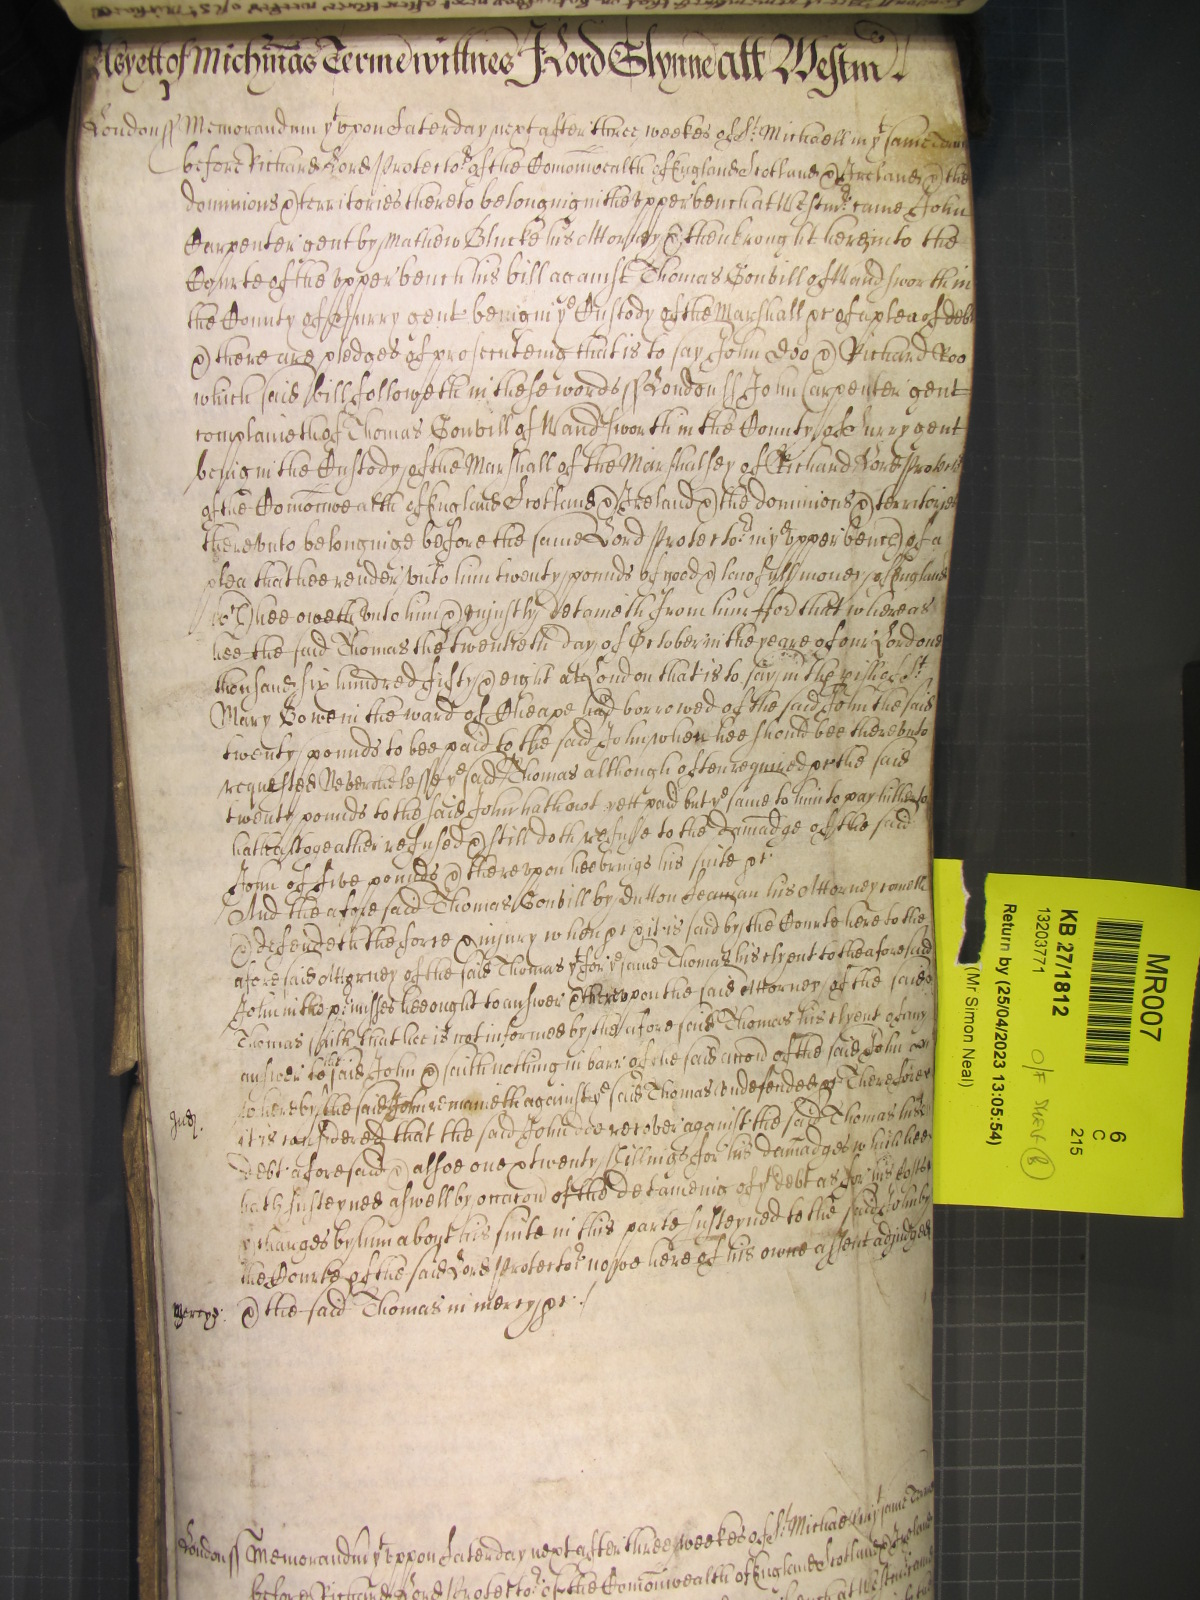 As yett of Michmas Terme wittnes J: Lord Glynne att Westm̄.
London ss Memorandum yt vpon Saterday next after three weekes of St Michaell in ye same Terme
before Richard Lord Protector of the Comōnwealth of England Scotland & Ireland & the
dominions & territories thereto belonging in the vpper bench at Westmr came John
Carpenter gent by Mathew Blucke his Attorney & then brought here into the
Courte of the vpper bench his bill against Thomas Bonvill of Wandsworth in
the County of Surry gent being in ye Custody of the Marshall &c of a plea of debt
& there are pledges of prosecuteing that is to say John Doo & Richard Roo
which said bill followeth in these words ss London ss John Carpenter gent
complaineth of Thomas Bonvill of Wandsworth in the County of Surry gent
being in the Custody of the Marshall of the Marshalsey of Richard Lord Protector
of the Comōnwealth of England Scotland & Ireland & the dominions & territories
therevnto belonginge before the same Lord Protector in ye vpper bench of a
plea that hee render vnto him twenty pounds of good & lawfull money of England
wch hee oweth vnto him & vnjustly detaineth from him ffor that whereas
hee the said Thomas the twentieth day of October in the yeare of our Lord one
thousand six hundred fifty & eight att London that is to say in the parish of St
Mary Bowe in the ward of Cheape had borrowed of the said John the said
twenty pounds to bee paid to the said John when hee should bee therevnto
requested Neverthelesse ye said Thomas although often required &c the said
twenty pounds to the said John hath not yett paid but ye same to him to pay hitherto
hath altogeather refused & still doth refuse to the damadge of the said
John of five pounds & therevpon hee brings his suite &c
And the aforesaid Thomas Bonvill by Dutton Seaman his Attorney cometh
& defendeth the force & injury when &c & it is said by the Courte here to the
aforesaid Attorney of the said Thomas yt for ye same Thomas his clyent to the aforesaid
John in the prmisses hee ought to answer & therevpon the said Attorney of the said
Thomas saith that hee is not informed by the aforesaid Thomas his clyent of any
answer to the said John & saith nothing in barr of the said accōn of the said John
whereby the said John remaineth against ye said Thomas vndefended &c Therefore
Judg. it is considered that the said John doe recover against the said Thomas his
debt aforesaid & alsoe one & twenty shillings for his damadges which hee
hath susteyned aswell by occasion of the detaineing of yt debt as for his costs
& charges by him about his suite in this parte susteyned to the said John by
the Courte of the said Lord Protector nowe here of his owne assent adjudged
Mercye. & the said Thomas in mercy &c ./
London ss Memorandum yt vppon Saterday next after three weekes of St Michael in ye same Terme
before Richard Lord Protector of the Comōnwealth of England Scotland & Ireland
MR007
6
C
215
KB 27/1812
13203771
O/F
Return by (25/04/2023 13:05:54)
(Mr Simon Neal)